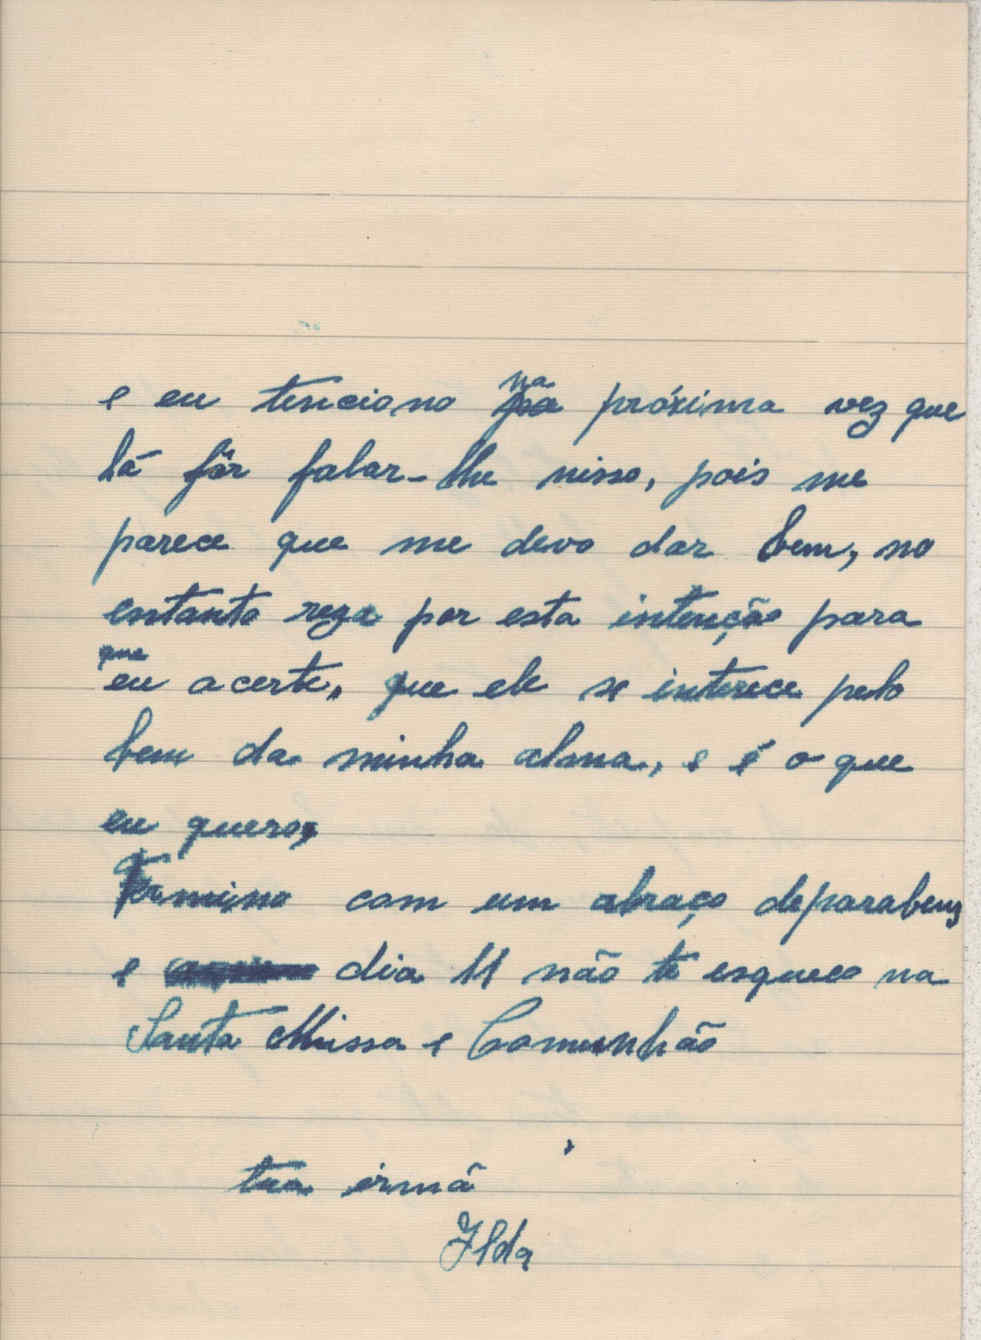 e eu tenciono na próxima vez que
lá fôr falar-lhe nisso, pois me
parece que me devo dar bem, no
entanto reza por esta intenção para
que
eu acerte, que ele se interece pelo
bem da minha alma, e é o que
eu quero,
Termino com um abraço deparabens
e dia 11 não te esqueco na
Santa Missa e Comunhão
tua irmã
Ilda